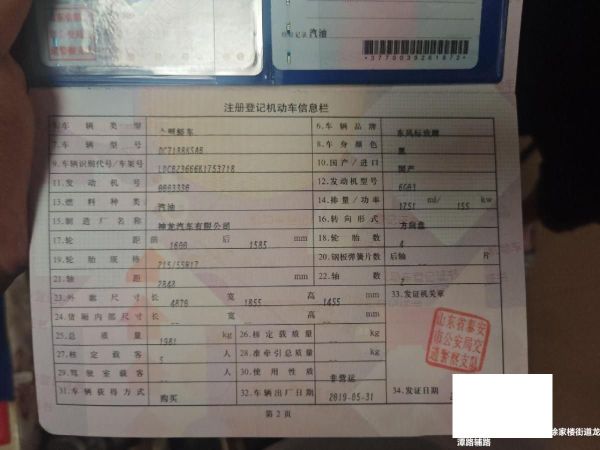 汽油
*3770039261872*
注册登记机动车信息栏
5.车辆类型 小型轿车 6.车辆品牌 东风标致牌
7.车辆型号 8.车身颜色 黑
9.车辆识别代号/车架号 10.国产/进口 国产
11.发动机号 12.发动机型号
13.燃料种类 汽油 14.排量/功率 1751 ml/ 155 kw
15.制造厂名称 神龙汽车有限公司 16.转向形式 方向盘
17.轮距 前 1600 后 1585 mm 18.轮胎数 4
19.轮胎规格 215/55R17 20.钢板弹簧片数 后轴 -- 片
21.轴距 2848 mm 22.轴数 2
23.外廓尺寸 长 4870 宽 1855 高 1455 mm 33.发证机关章
24.货厢内部尺寸 长 -- 宽 -- 高 -- mm
25.总质量 1981 kg 26.核定载质量 -- kg
27.核定载客 5 人 28.准牵引总质量 -- kg
29.驾驶室载客 -- 人 30.使用性质 非营运
31.车辆获得方式 购买 32.车辆出厂日期 2019-05-31 34.发证日期
山东省泰安
市公安局交
通警察支队
第2页
徐家楼街道龙
潭路辅路